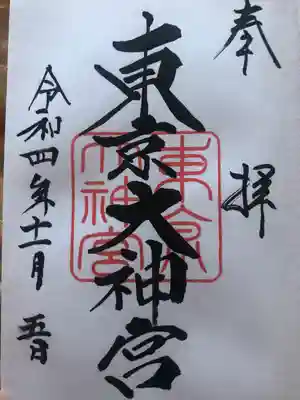 奉拝
東京大神宮
東京大神宮
令和四年十一月五日